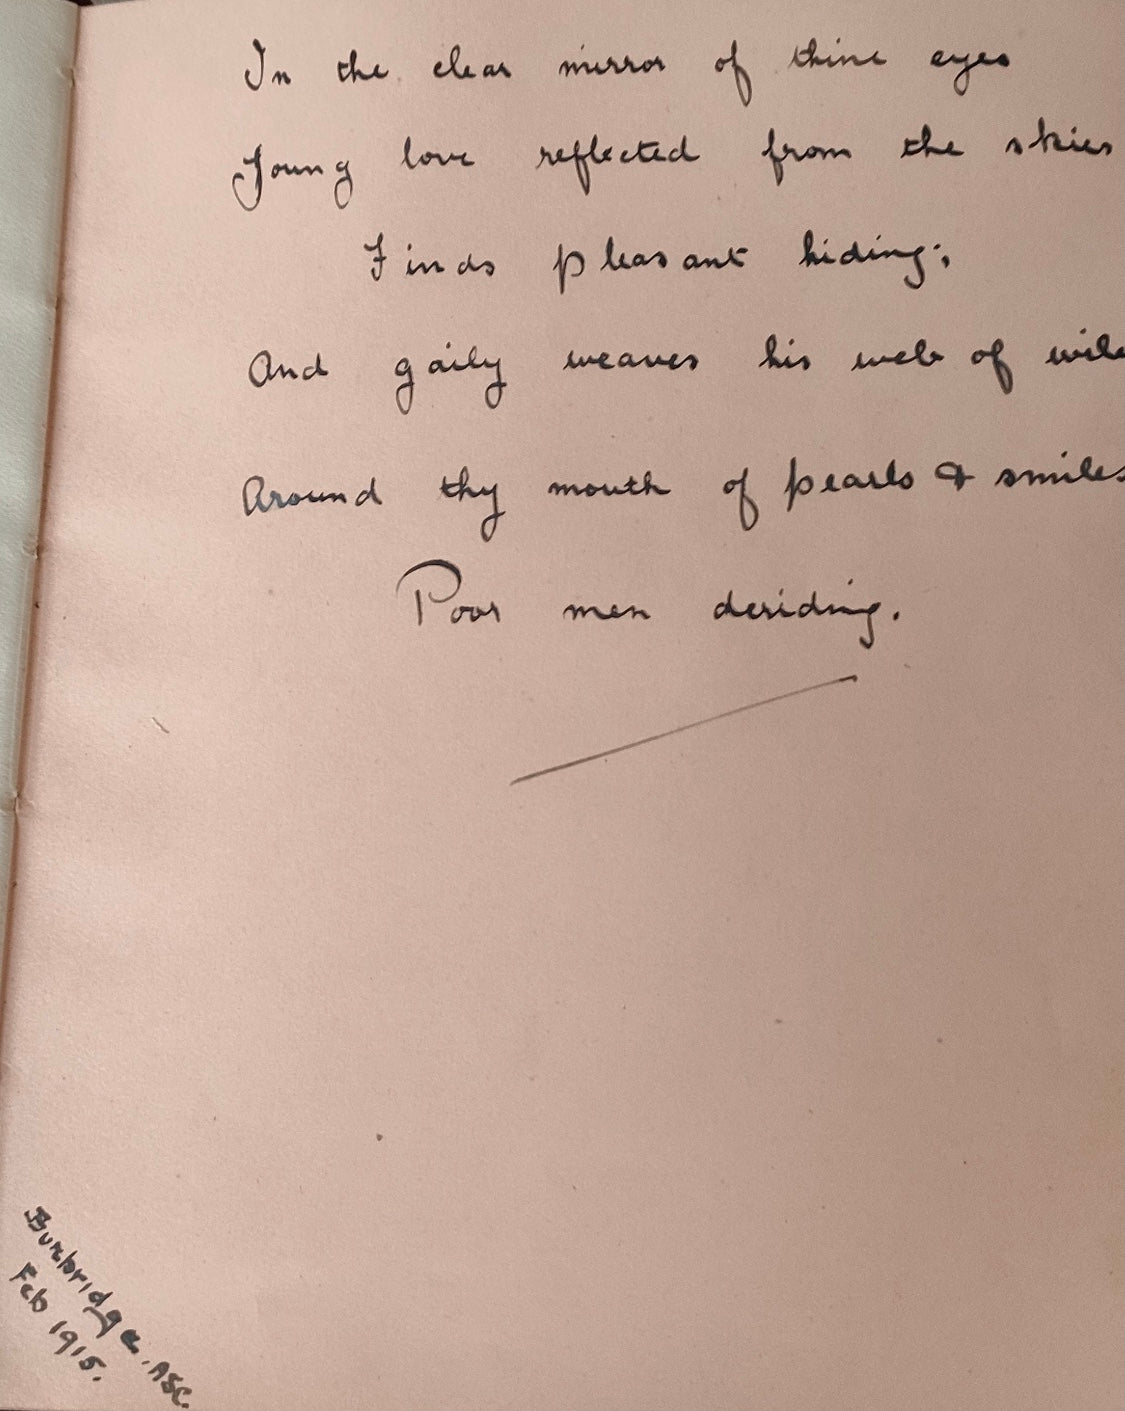 In the clear mirror of thine eyes
Young love reflected from the skies
Finds pleasant hiding;
And gaily weaves his web of wile
Around thy mouth of pearls & smiles
Poor men deriding.
Burbridge. ASC.
Feb 1915.